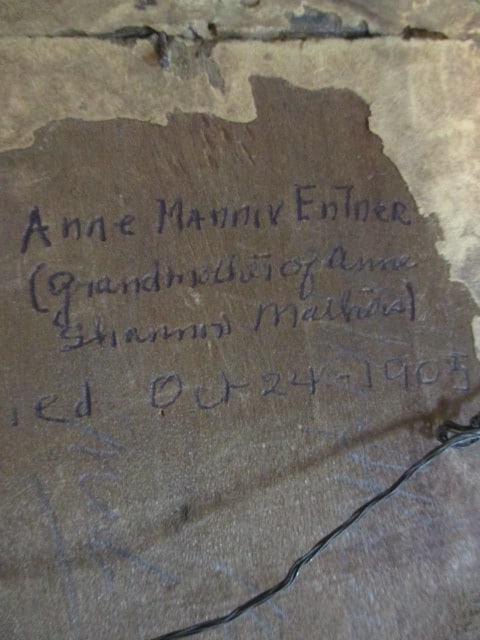 Anne MANNIX EnTneR
(grandmother of Anne
Shannon Mathews)
ied Oct 24-1905